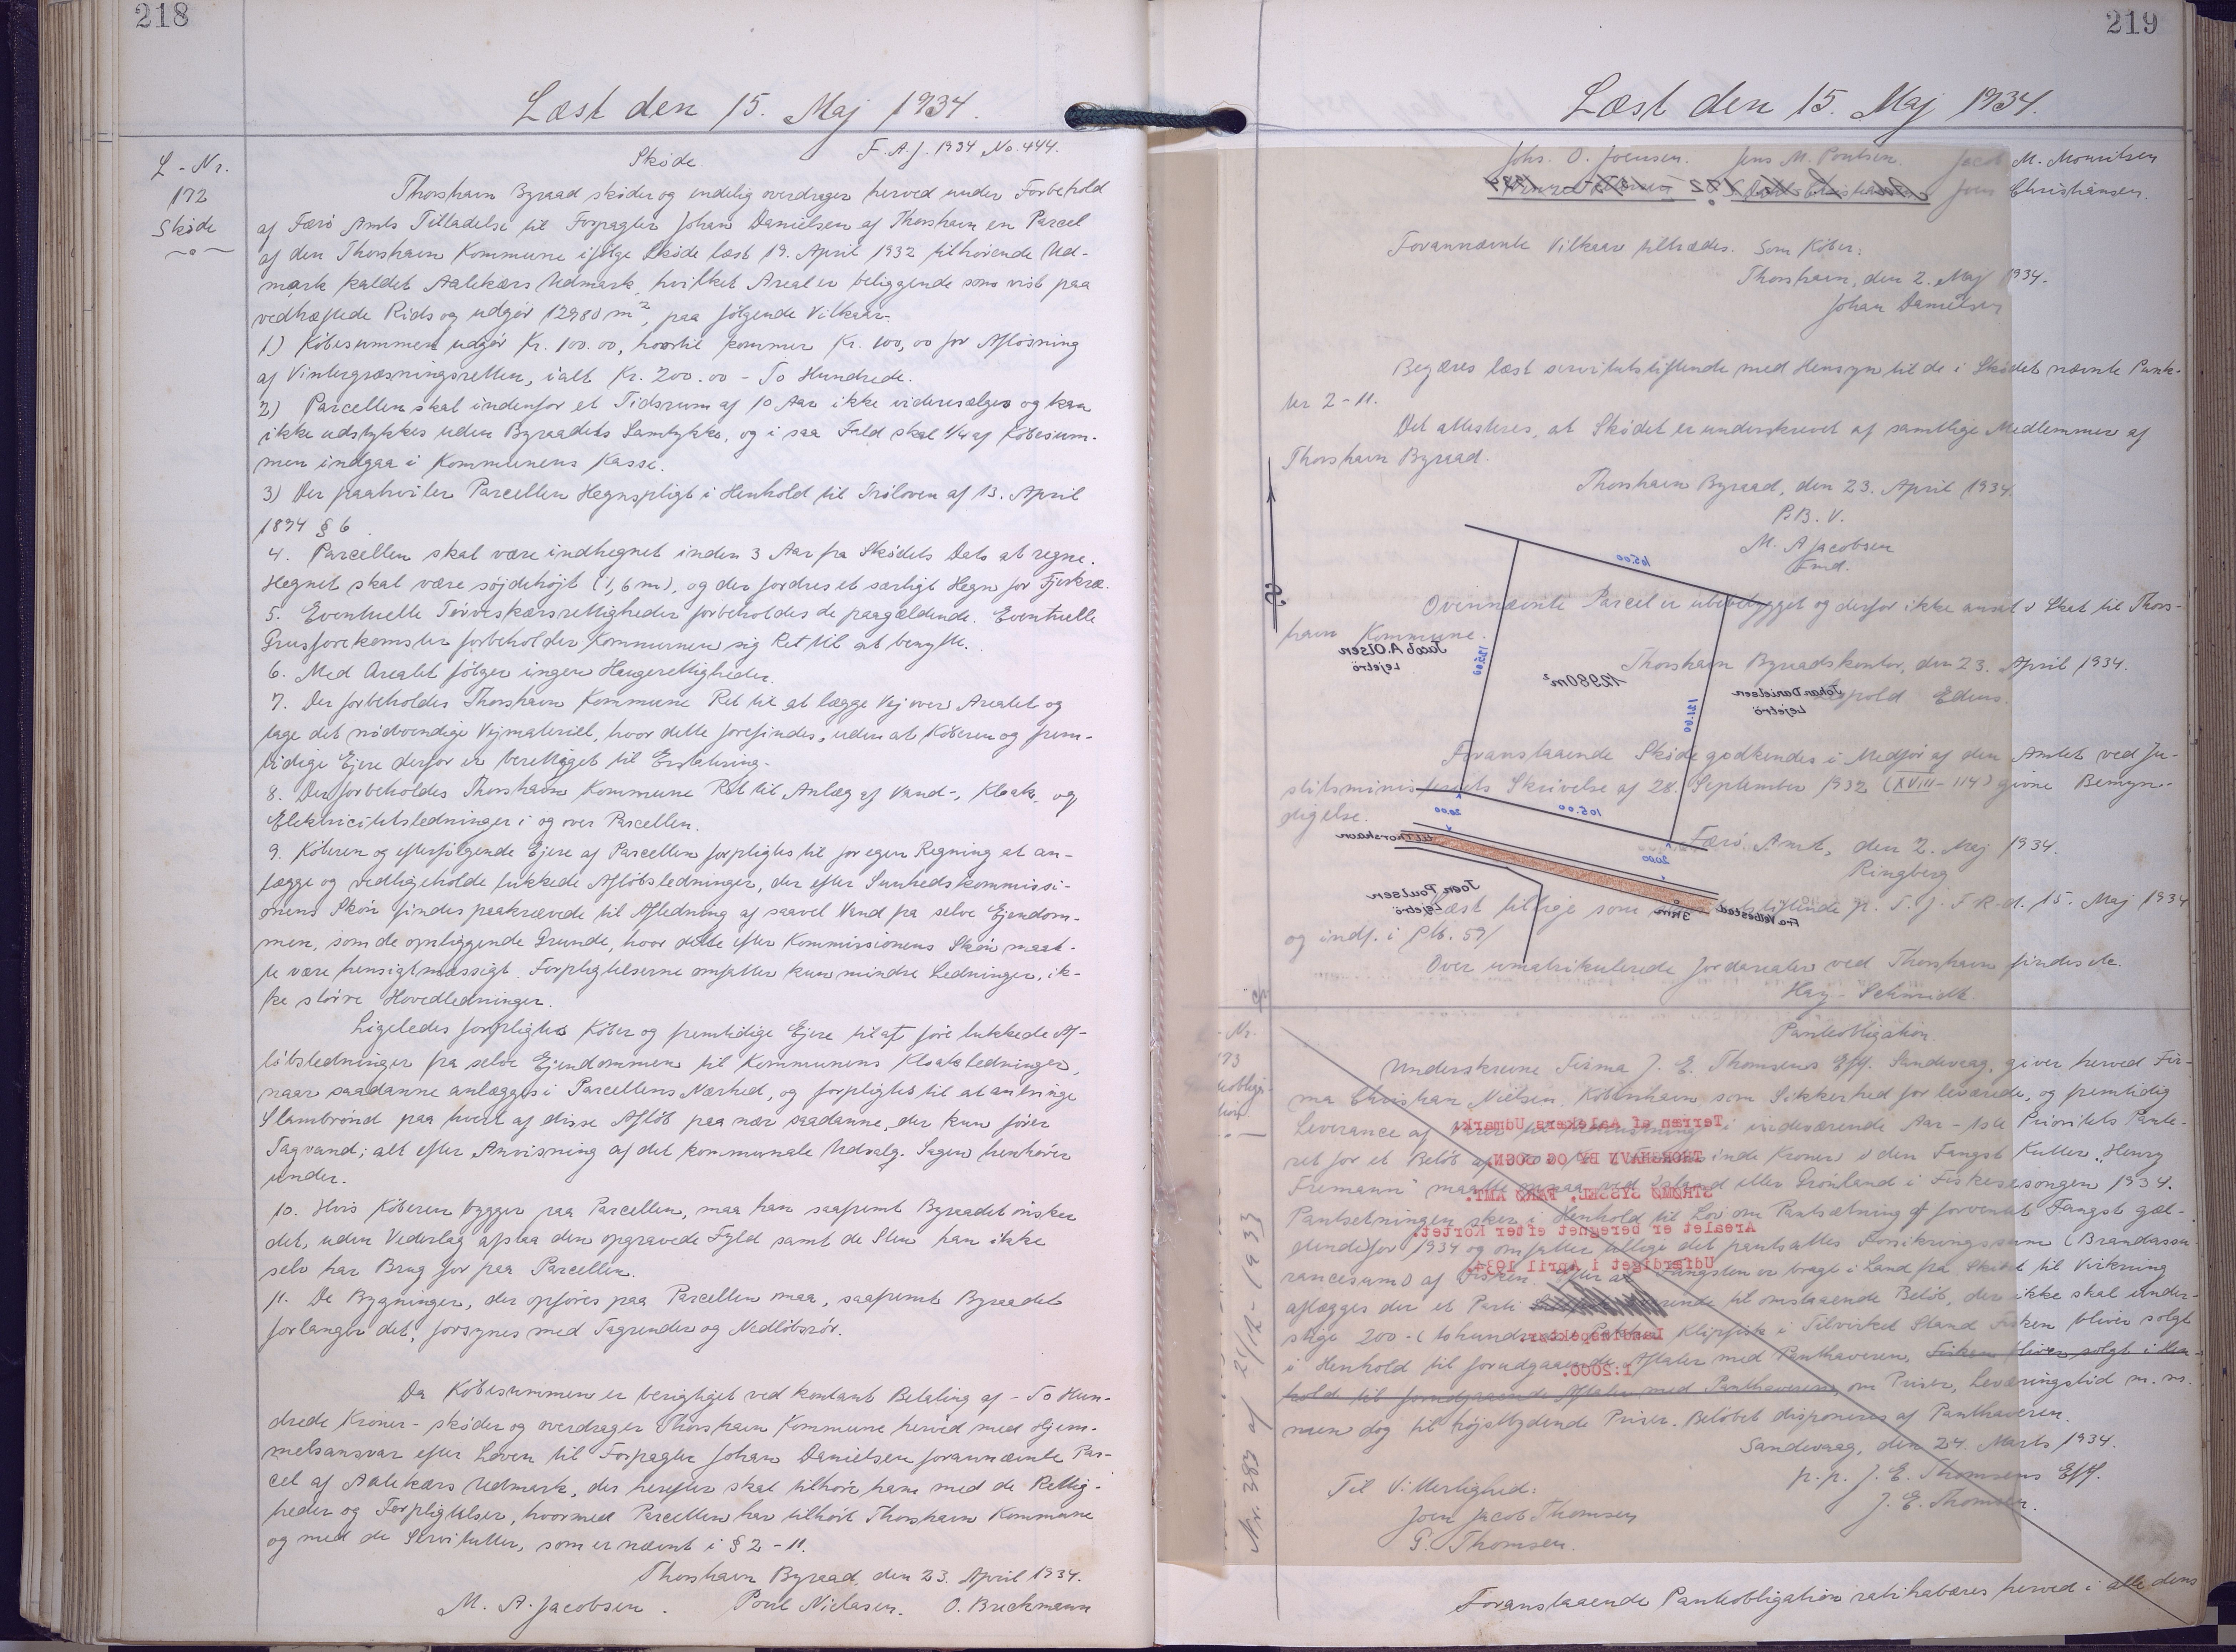 218
Læst den 15. Maj 1934.
L-Nr.
172
Skøde
Skøde.
F. A. J. 1934 No. 444.
Thorshavn Byraad skøder og endelig overdrager herved under Forbehold
af Færø Amts Tilladelse til Forpagter Johan Danielsen af Thorshavn en Parcel
af den Thorshavn Kommune ifølge Skøde læst 19. April 1932 tilhørende Ud-
mark kaldet Aalekærs Udmark, hvilket Areal er beliggende som vist paa
vedhæftede Rids og udgør 12980 m², paa følgende Vilkaar.
1) Købesummen udgør Kr. 100.00, hvortil kommer Kr. 100,00 for Afløsning
af Vintergræsningsretten, ialt Kr. 200.00 - To Hundrede.
2) Parcellen skal indenfor et Tidsrum af 10 Aar ikke videresælges og kan
ikke udstykkes uden Byraadets Samtykke, og i saa Fald skal 1/4 af Købesum-
men indgaa i Kommunens Kasse.
3) Der paahviler Parcellen Hegnspligt i Henhold til Trøloven af 13. April
1894 § 6.
4. Parcellen skal være indhegnet inden 3 Aar fra Skødets Dato at regne.
Hegnet skal være søjdehøjt (1,6 m), og der fordres et særligt Hegn for Fjerkræ.
5. Eventuelle Tørveskærsrettigheder forbeholdes de paagældende. Eventuelle
Grusforekomster forbeholder Kommunen sig Ret til at benytte.
6. Med Arealet følger ingen Haugerettigheder.
7. Der forbeholdes Thorshavn Kommune Ret til at lægge Vej over Arealet og
tage det nødvendige Vejmateriel, hvor dette forefindes, uden at Køberen og frem-
tidige Ejere derfor er berettiget til Erstatning.
8. Der forbeholdes Thorshavn Kommune Ret til Anlæg af Vand-, Kloak- og
Elektricitetsledninger i og over Parcellen.
9. Køberen og efterfølgende Ejere af Parcellen forpligtes til for egen Regning at an-
lægge og vedligeholde lukkede Afløbsledninger, der efter Sunhedskommissi-
onens Skøn findes paakrævede til Afledning af saavel Vand fra selve Ejendom-
men, som de opliggende Grunde, hvor dette efter Kommissionens Skøn maat-
te være hensigtmæssigt. Forpligtelserne omfatter kun mindre Ledninger, ik-
ke større Hovedledninger.
Ligeledes forpligtes Køber og fremtidige Ejere til at føre lukkede Af-
løbsledninger fra selve Ejendommen til Kommunens Kloakledninger,
naar saadanne anlægges i Parcellens Nærhed, og forpligtes til at anbringe
Slambrønd paa hvert af disse Afløb paa nær saadanne, der kun fører
Tagvand; alt efter Anvisning af det kommunale Udvalg. Sagen henhører
under.
10. Hvis Køberen bygger paa Parcellen, maa han saafremt Byraadet ønsker
det, uden Vederlag afstaa den opgravede Fyld samt de Sten han ikke
selv har Brug for paa Parcellen.
11. De Bygninger, der opføres paa Parcellen maa, saafremt Byraadet
forlanger det, forsynes med Tagrender og Nedløbsrør.
Da Købesummen er berigtiget ved kontant Betaling af - To Hun-
drede Kroner - skøder og overdrager Thorshavn Kommune herved med Hjem-
melsansvar efter Loven til Forpagter Johan Danielsen forannævnte Par-
cel af Aalekærs Udmark, der herefter skal tilhøre ham med de Rettig-
heder og Forpligtelser, hvormed Parcellen har tilhørt Thorshavn Kommune
og med de Servitutter, som er nævnt i § 2-11.
Thorshavn Byraad, den 23. April 1934.
M. A. Jacobsen. Poul Niclasen. O. Brechmann
219
Læst den 15. Maj 1934.
Johs. O. Joensen. Jens M. Poulsen. Jacob M. Mouritsen
Joen Christiansen.
Forannævnte Vilkaar tiltrædes. Som Køber:
Thorshavn, den 2. Maj 1934.
Johan Danielsen
Begæres læst servitutstiftende med Hensyn til de i Skødet nævnte Punk-
ter 2-11.
Det attesteres, at Skødet er underskrevet af samtlige Medlemmer af
Thorshavn Byraad.
Thorshavn Byraad, den 23. April 1934.
P. B. V.
M. A Jacobsen
Fmd.
105.00
Ovennævnte Parcel er ubebygget og derfor ikke ansat i Skat til Thors-
havn Kommune.
Jacob A. Olsen
Lejetrö
12980 m²
Thorshavn Byraadskontor, den 23. April 1934.
Johan Danielsen
Lejetrö
Edens.
121.00
Foranstaaende Skøde godkendes i Medfør af den Amtet ved Ju-
stitsministeriets Skrivelse af 28. September 1932 (XVIII-114) givne Bemyn-
digelse.
20.00
105.00
20.00
til Thorshavn
Færø Amt, den 2. Maj 1934.
Ringberg
Joen Poulsen
Lejetrö
3 km
Fra Velbested
Læst tillige som servitutstiftende p. F. J. F. R. d. 15. Maj 1934
og indf. i Plb. 59/
Over umatrikulerede Jordarealer ved Thorshavn findes etc.
Hay-Schmidt
Pantobligation.
Underskrevne Firma J. E. Thomsens Eftf. Sandevaag, giver herved Fir-
ma Christian Nielsen, København som Sikkerhed for leverede, og fremtidig
Leverance af Varer til i indeværende Aar - 1ste Prioritets Pante-
ret for et Beløb af inde Kroner i den Fangst Kutter "Henry
Fremann" maatte opnaa ved Island eller Grønland i Fiskesæsongen 1934.
Pantsetningen sker i Henhold til Lov om Pantsætning af forventet Fangst gæl-
dende for 1934 og omfatter tillige det pantsattes Forsikringssum (Brandassu
rancesum) af Fisken. Efter at Fangsten er bragt i Land fra Skibet til Virkning
aflægges der et Parti til omstaaende Beløb, der ikke skal under-
stige 200 - (tohundrede) Klipfisk i Tilvirket Stand. Fisken bliver solgt
i Henhold til forudgaaende Aftaler med Panthaveren, Fisken bliver solgt i Hen-
hold til forudgaaende Aftaler med Panthaveren, om Priser, Leveringstid m. m.
men dog til højstbydende Priser. Beløbet disponeres af Panthaveren.
Sandevaag, den 24. Marts 1934.
p. p. J. E. Thomsens Eftf.
J. E. Thomsen.
Til Vitterlighed:
Joen Jacob Thomsen
G. Thomsen.
Terræn af Aalekers Udmark.
THORSHAVN BY OG SOGN.
STRØMØ SYSSEL, FÆRØ AMT.
Arealet er beregnet efter Kortet.
Udfærdiget i April 1934.
Landinspektør.
1:2000.
Nr. 383 af 21/12-1933
Foranstaaende Pantobligation ratihaberes herved i alle dens